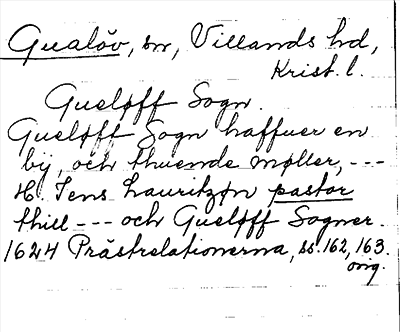 Gualöv, sn, Villands hd,
Krist. l.
Gueløff Sogn.
Gueløff Sogn haffuer en
bÿ, och thuende møller, ---
H. Jens Lauritzøn pastor
thill --- och Gueløff Sogner.
1624 Prästrelationerna, ss. 162, 163.
orig.